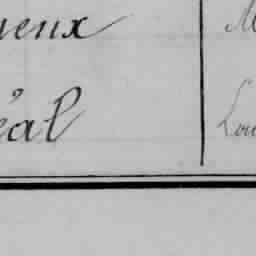 ueux M
éal Lou